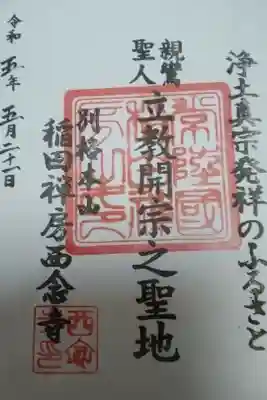 浄土真宗発祥のふるさと
親鸞
聖人
立教開宗之聖地
別格本山
稲田禅房西念寺
令和五年五月二十一日